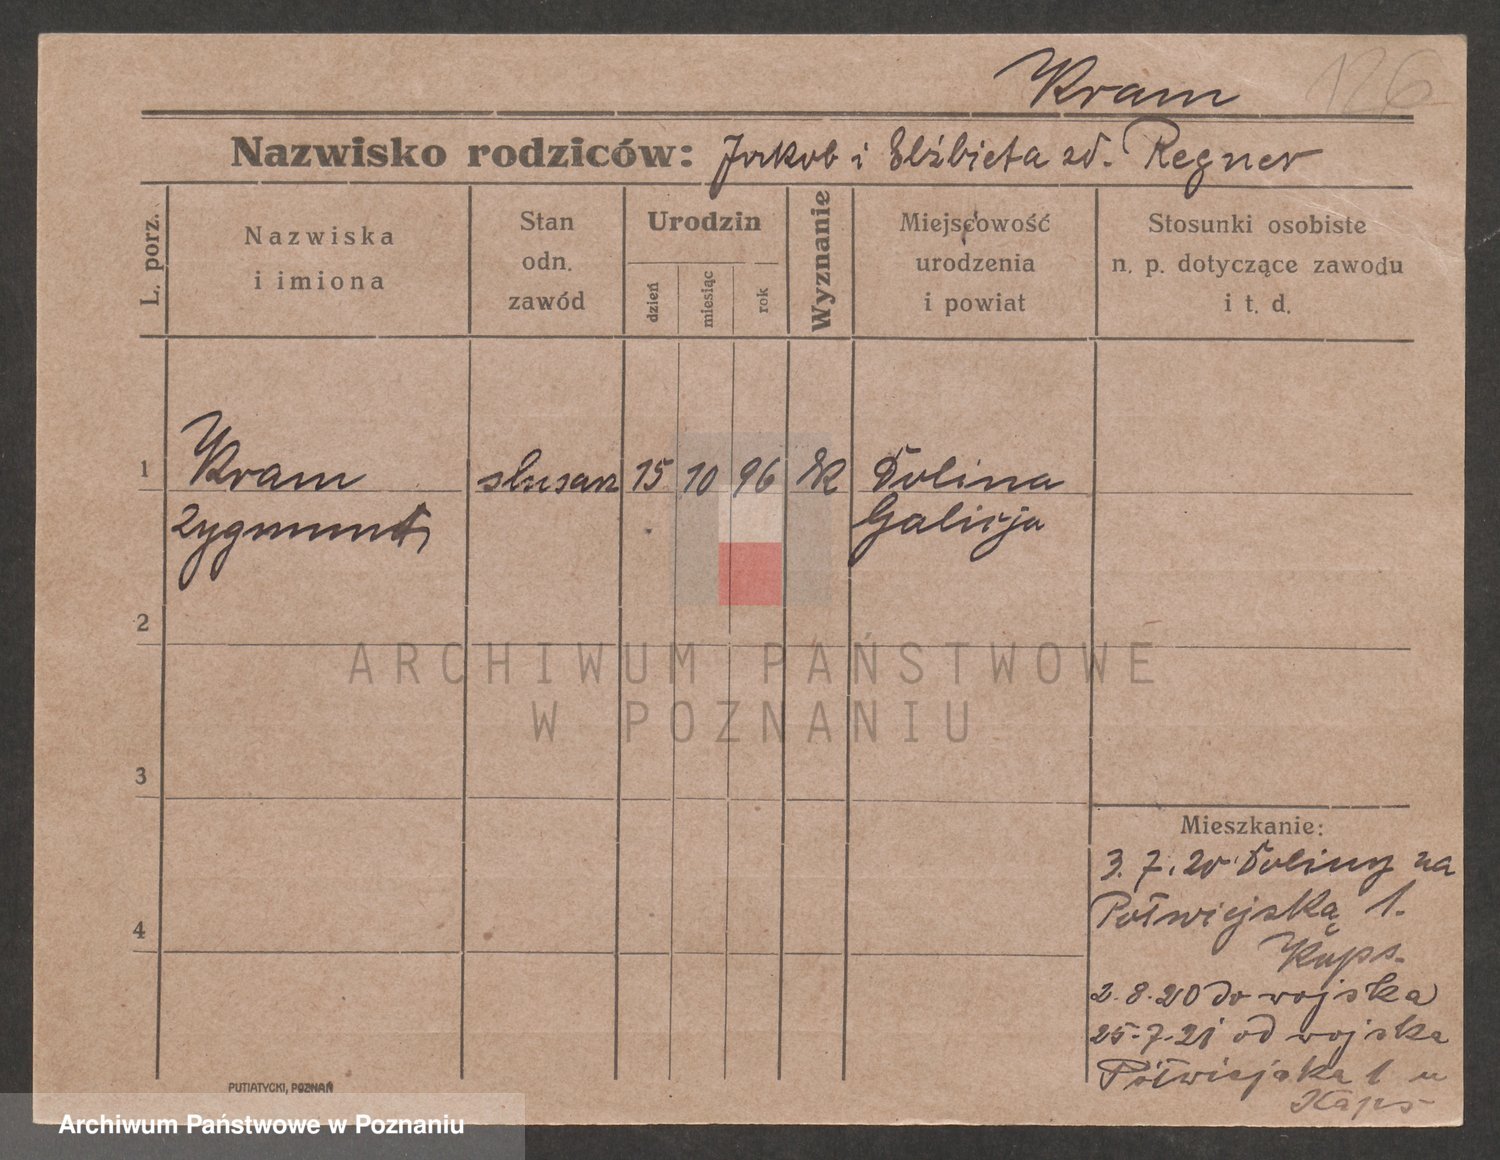 Kram
126
Nazwisko rodziców: Jakob i Elżbieta zd. Regner
L. porz.
Nazwiska
i imiona
Stan
odn.
zawód
Urodzin
dzień
miesiąc
rok
Wyznanie
Miejscowość
urodzenia
i powiat
Stosunki osobiste
n. p. dotyczące zawodu
i t. d.
1
Kram
Zygmunt
ślusarz
15
10
96
Dolina
Galicja
2
ARCHIWUM PAŃSTWOWE
W POZNANIU
3
4
Mieszkanie:
3. 7. 20 Doliny na
Półwiejską 1.
2. 8. 20 do wojska
25-7-21 od wojska
Półwiejska 1 u
PUTIATYCKI, POZNAŃ
Archiwum Państwowe w Poznaniu